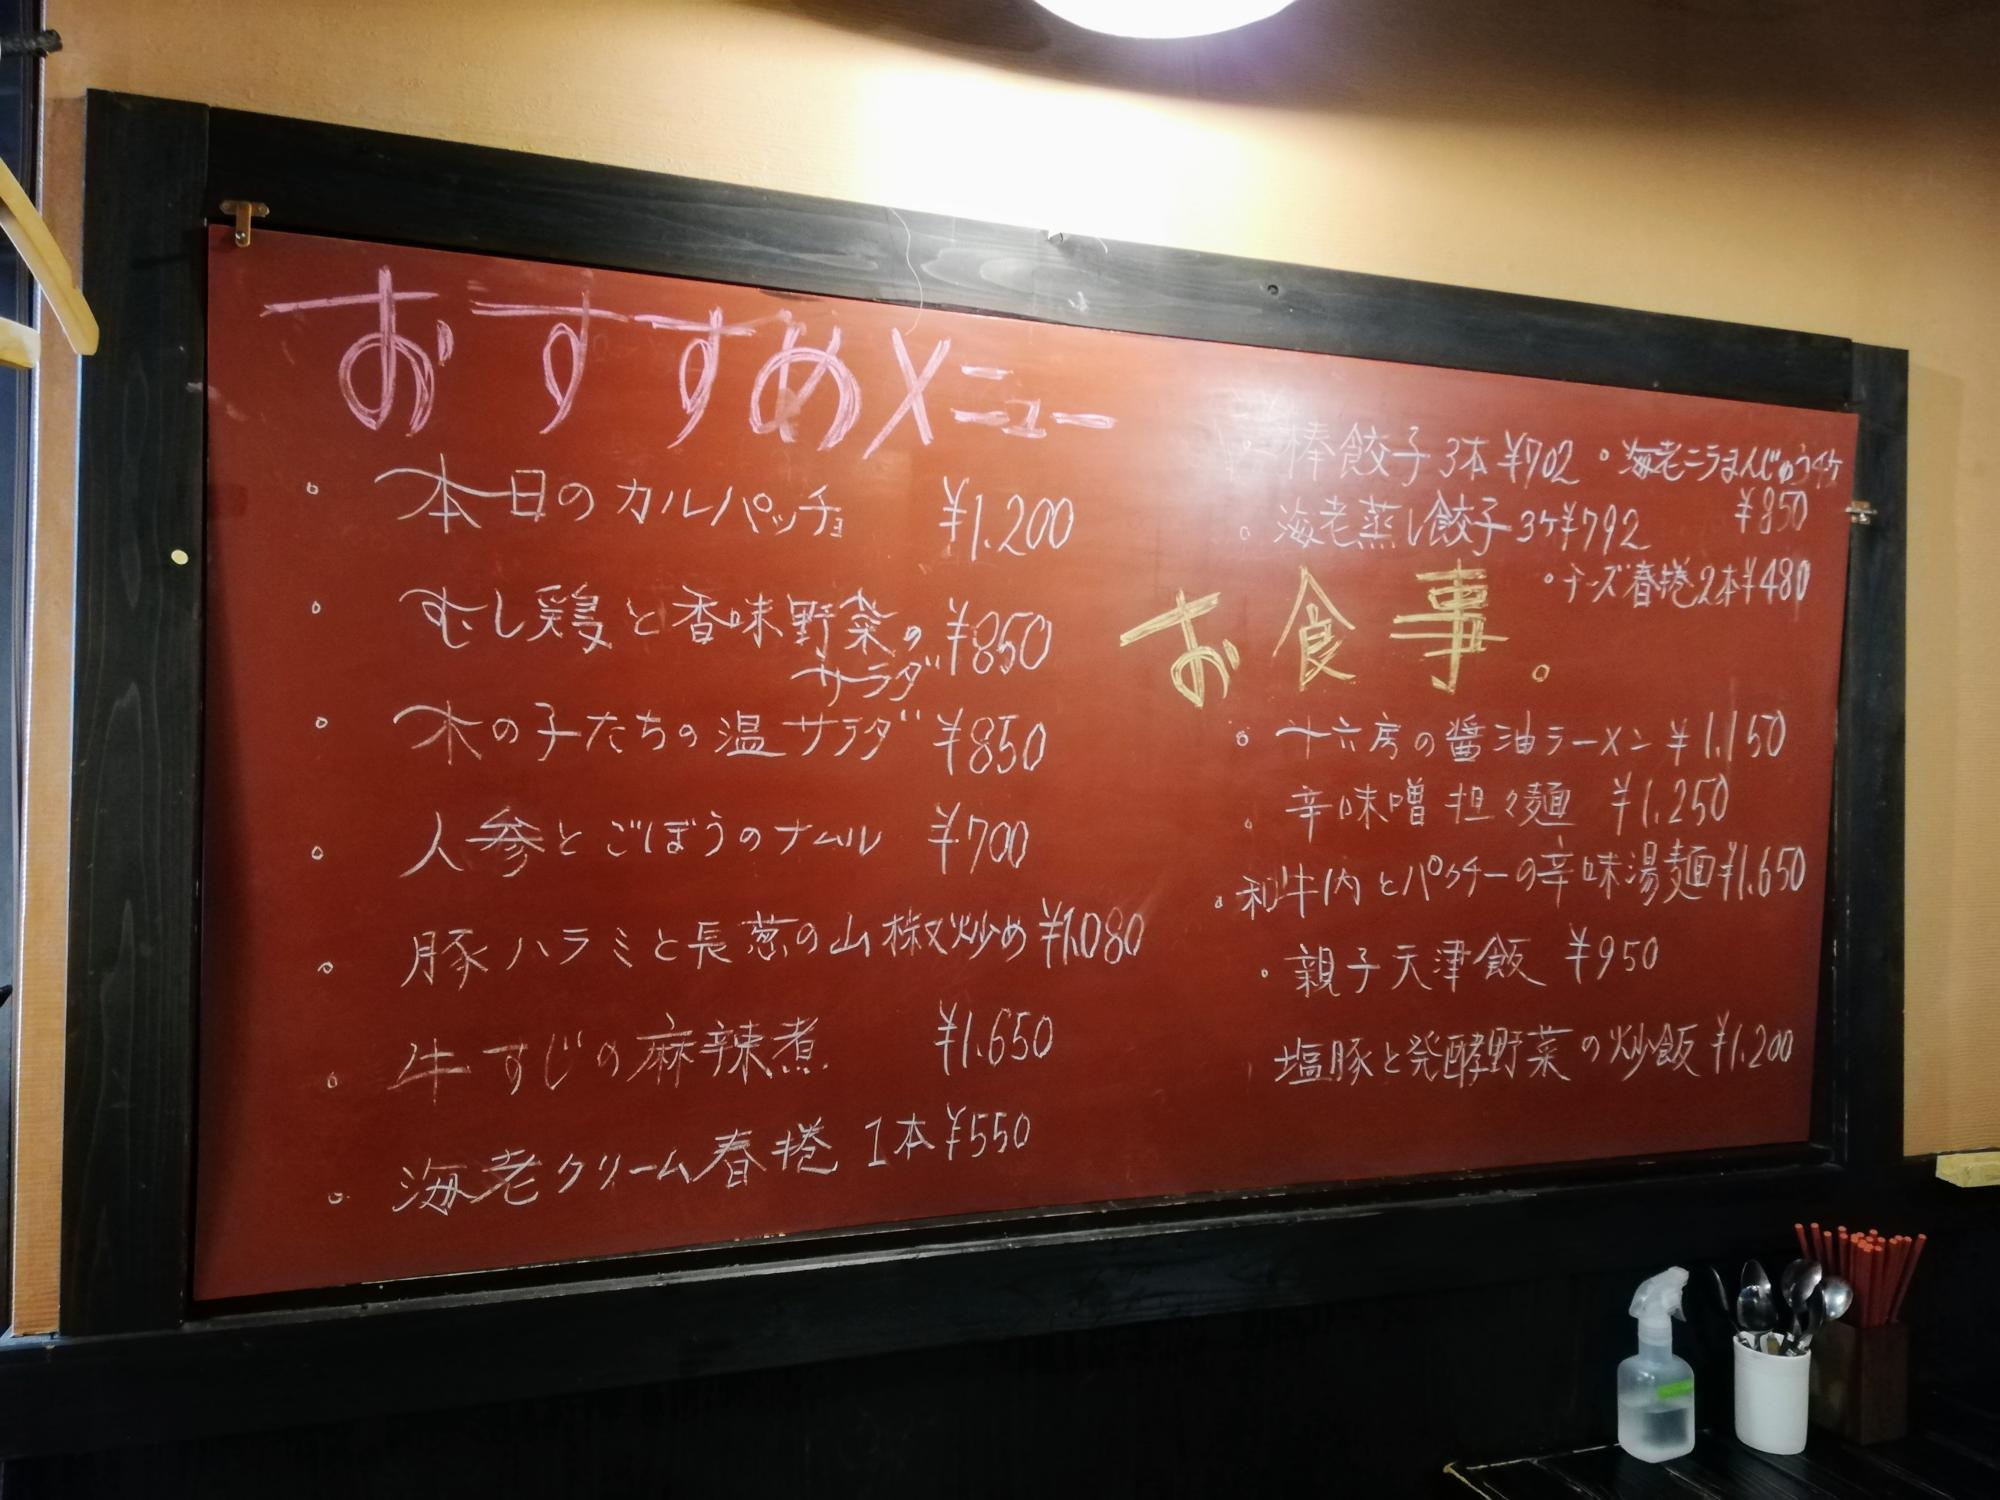 おすすめメニュー
。本日のカルパッチョ ¥1.200
。むし鶏と香味野菜の ¥850
サラダ
。木の子たちの温サラダ ¥850
。人参とごぼうのナムル ¥700
。豚ハラミと長葱の山椒炒め ¥1.080
。牛すじの麻辣煮 ¥1.650
。海老クリーム春捲 1本 ¥550
。棒餃子 3本 ¥702
。海老蒸し餃子 3ケ ¥792
。海老ニラまんじゅう4ケ
¥850
。チーズ春捲2本¥480
お食事。
。十六房の醤油ラーメン ¥1.150
。辛味噌担々麺 ¥1.250
。和牛肉とパクチーの辛味湯麺 ¥1.650
。親子天津飯 ¥950
塩豚と発酵野菜の炒飯 ¥1.200